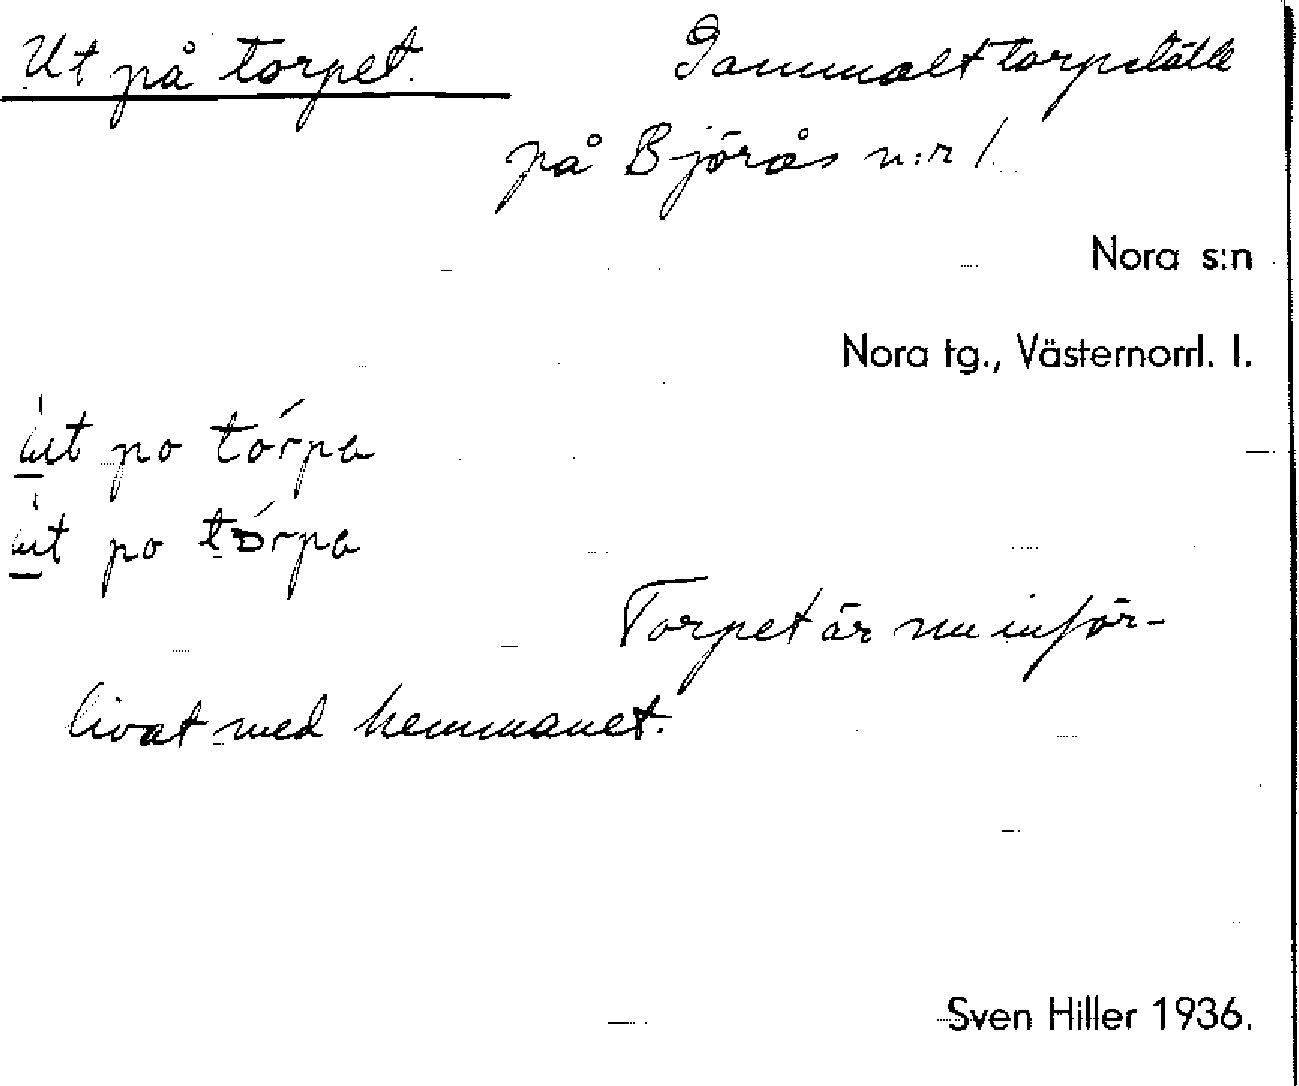 Ut på torpet. Gammalt torpställe
på Björås n:r 1.
Nora s:n
Nora tg., Västernorrl. l.
út po tórpa
út po tórpa
Torpet är nu inför-
livat med hemmanet.
Sven Hiller 1936.